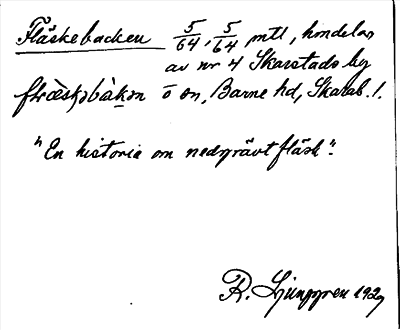 Fläskebacken 5/64, 5/64 mtl, hmdelar
av nr 4 Skarstads by
flæskəbàkən ō on, Barne hd, Skarab. l.
"En historia om nedgrävt fläsk".
R. Ljunggren 1929